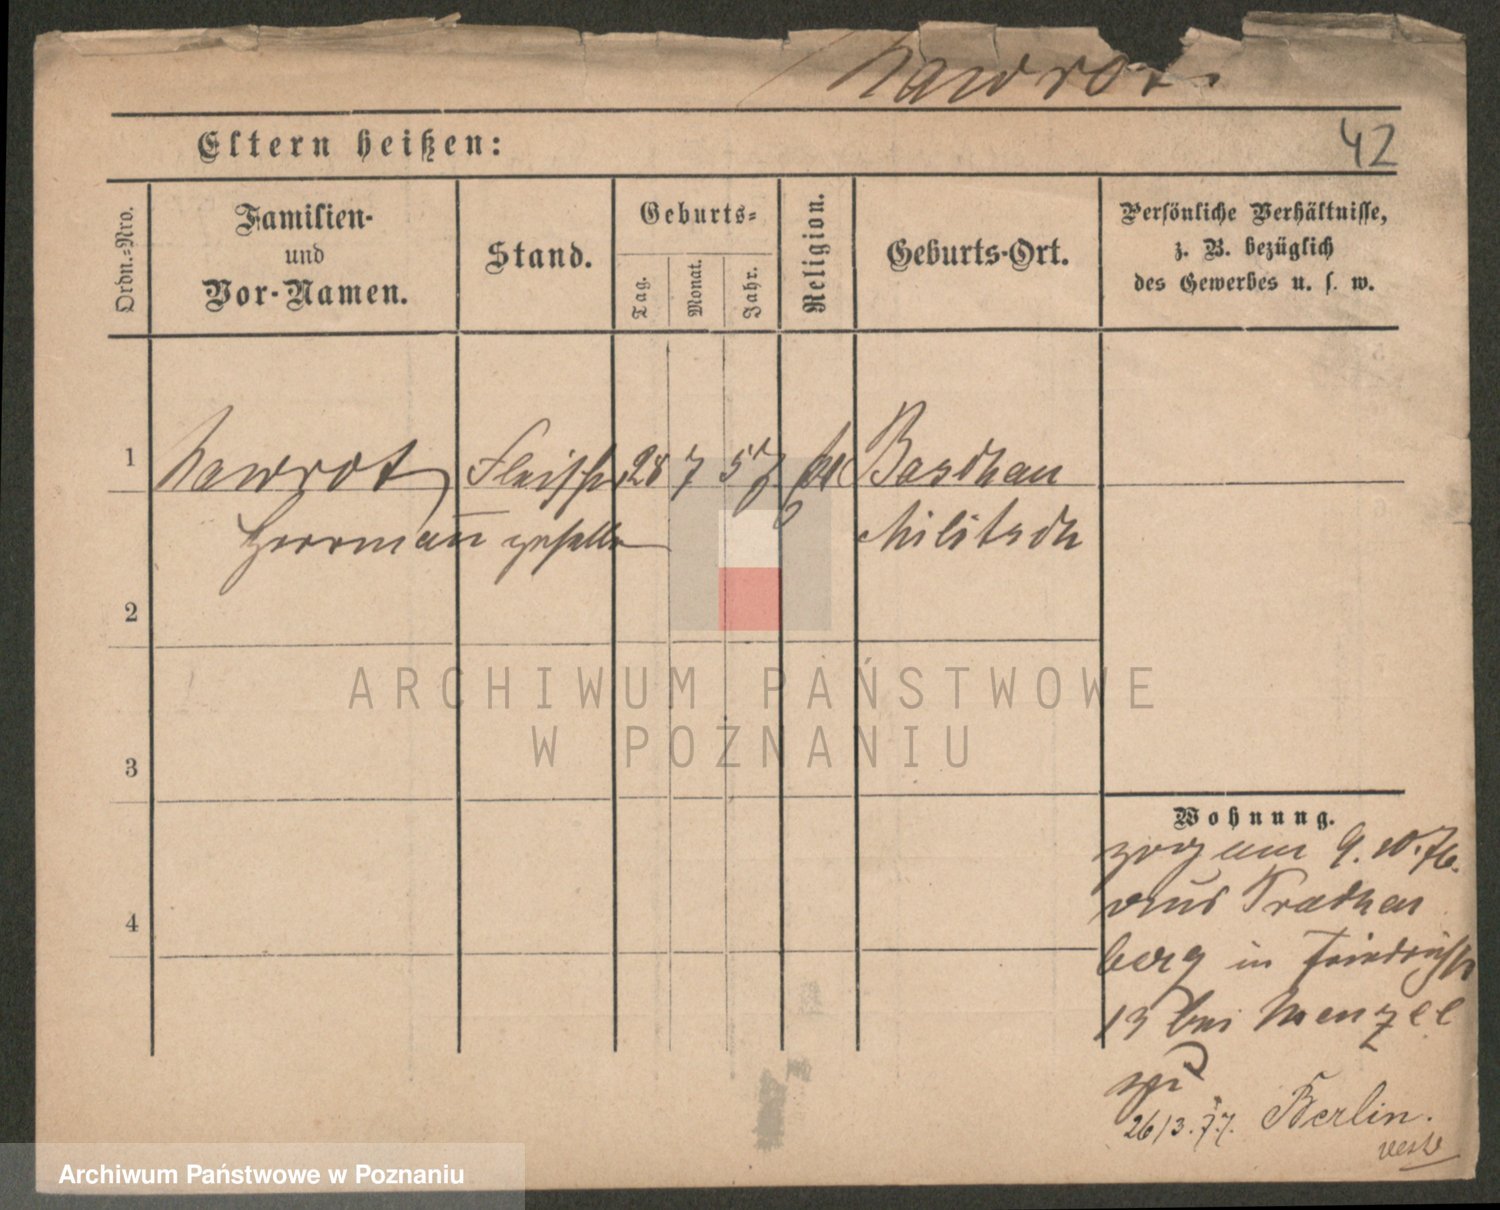 Nawrot.
Eltern heißen:
42
Ordn.-Nro.
Familien-
und
Vor-Namen.
Stand.
Geburts-
Tag.
Monat.
Jahr.
Religion.
Geburts-Ort.
Persönliche Verhältnisse,
z. B. bezüglich
des Gewerbes u. s. w.
1 Nawrot Fleischer 28 7 57 Baschkau
Herrmann geselle Militsch
2
3
4
Wohnung.
zog am 9. 10. 76.
aus Trachen
berg in Friedrichstr
13 bei Menzel
zu
26/3. 77. Berlin.
ARCHIWUM PAŃSTWOWE
W POZNANIU
Archiwum Państwowe w Poznaniu